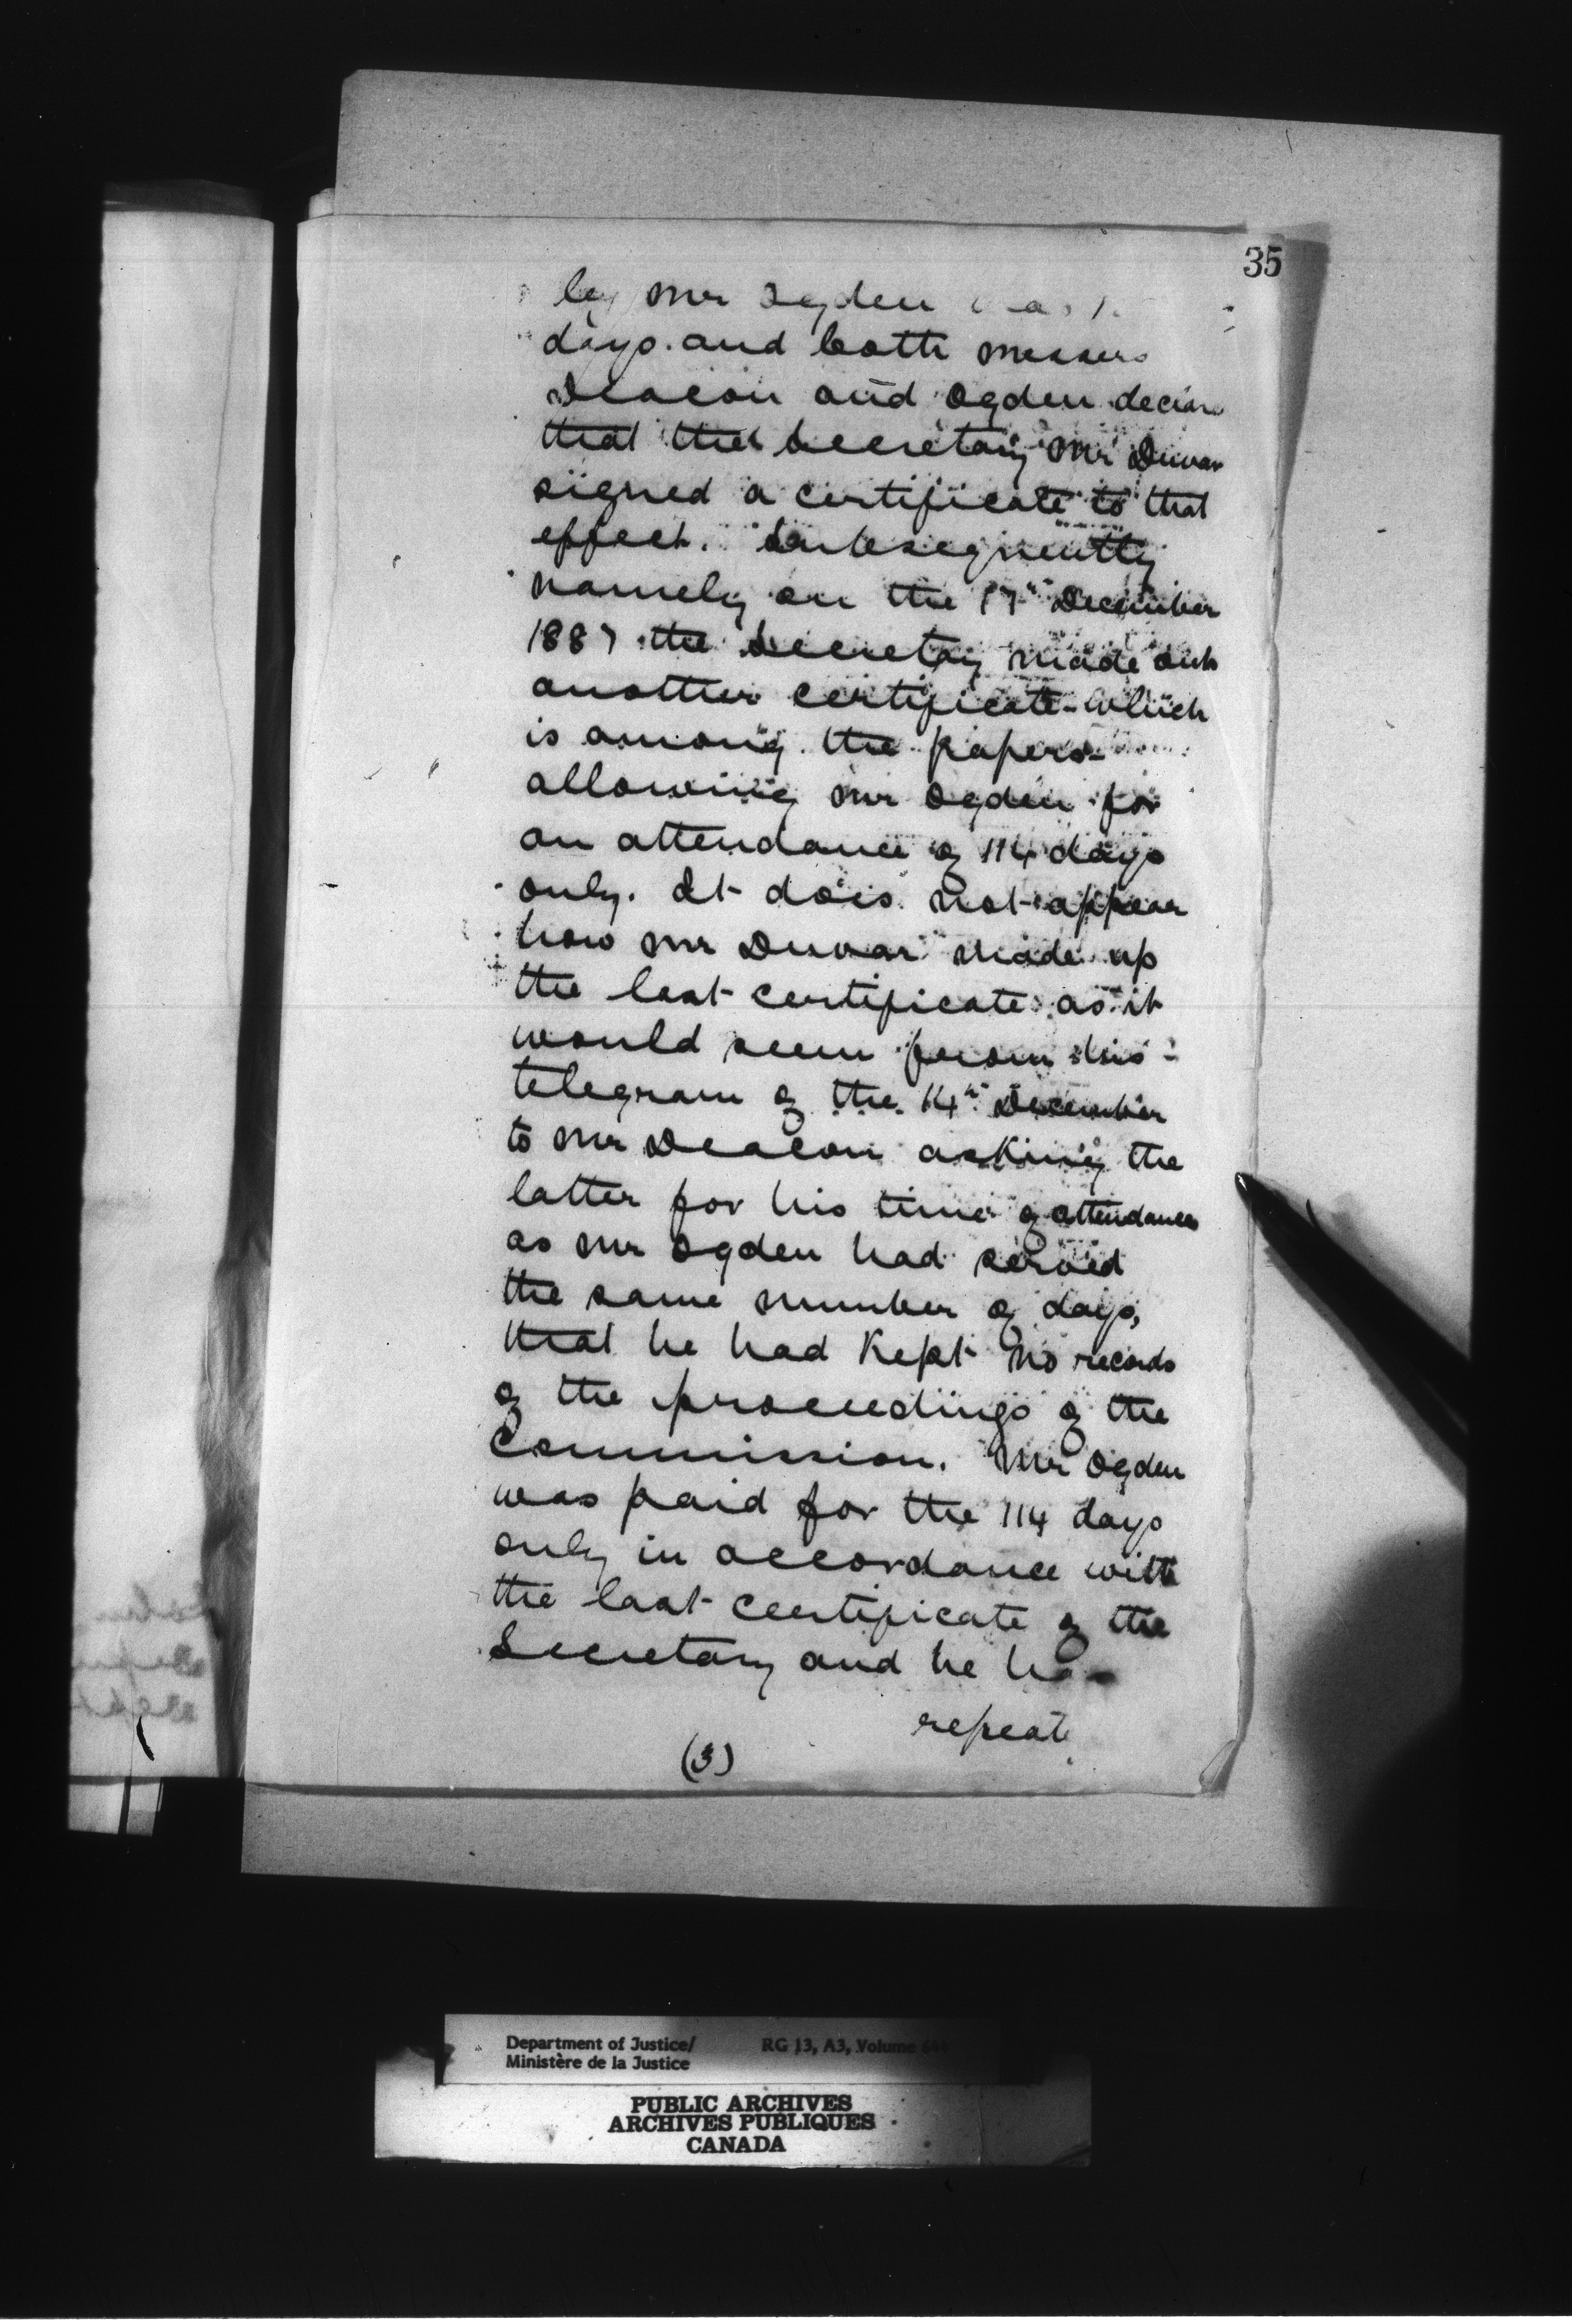 35
by Mr Ogden
days. and both Messrs
Deacon and Ogden declare
that the Secretary Mr Duvar
signed a certificate to that
effect. Subsequently
namely on the 17th December
1887 the Secretary made out
another certificate - which
is among the papers -
allowing Mr Ogden for
an attendance of 114 days
only. It does not appear
how Mr Duvar made up
the last certificate as it
would seem from his
telegram of the 14th December
to Mr Deacon asking the
latter for his time of attendance
as Mr Ogden had served
the same number of days,
that he had kept no records
of the proceedings of the
Commission. Mr Ogden
was paid for the 114 days
only in accordance with
the last certificate of the
Secretary and he has
repeat
(3)
Department of Justice/ RG 13, A3, Volume
Ministère de la Justice
PUBLIC ARCHIVES
ARCHIVES PUBLIQUES
CANADA